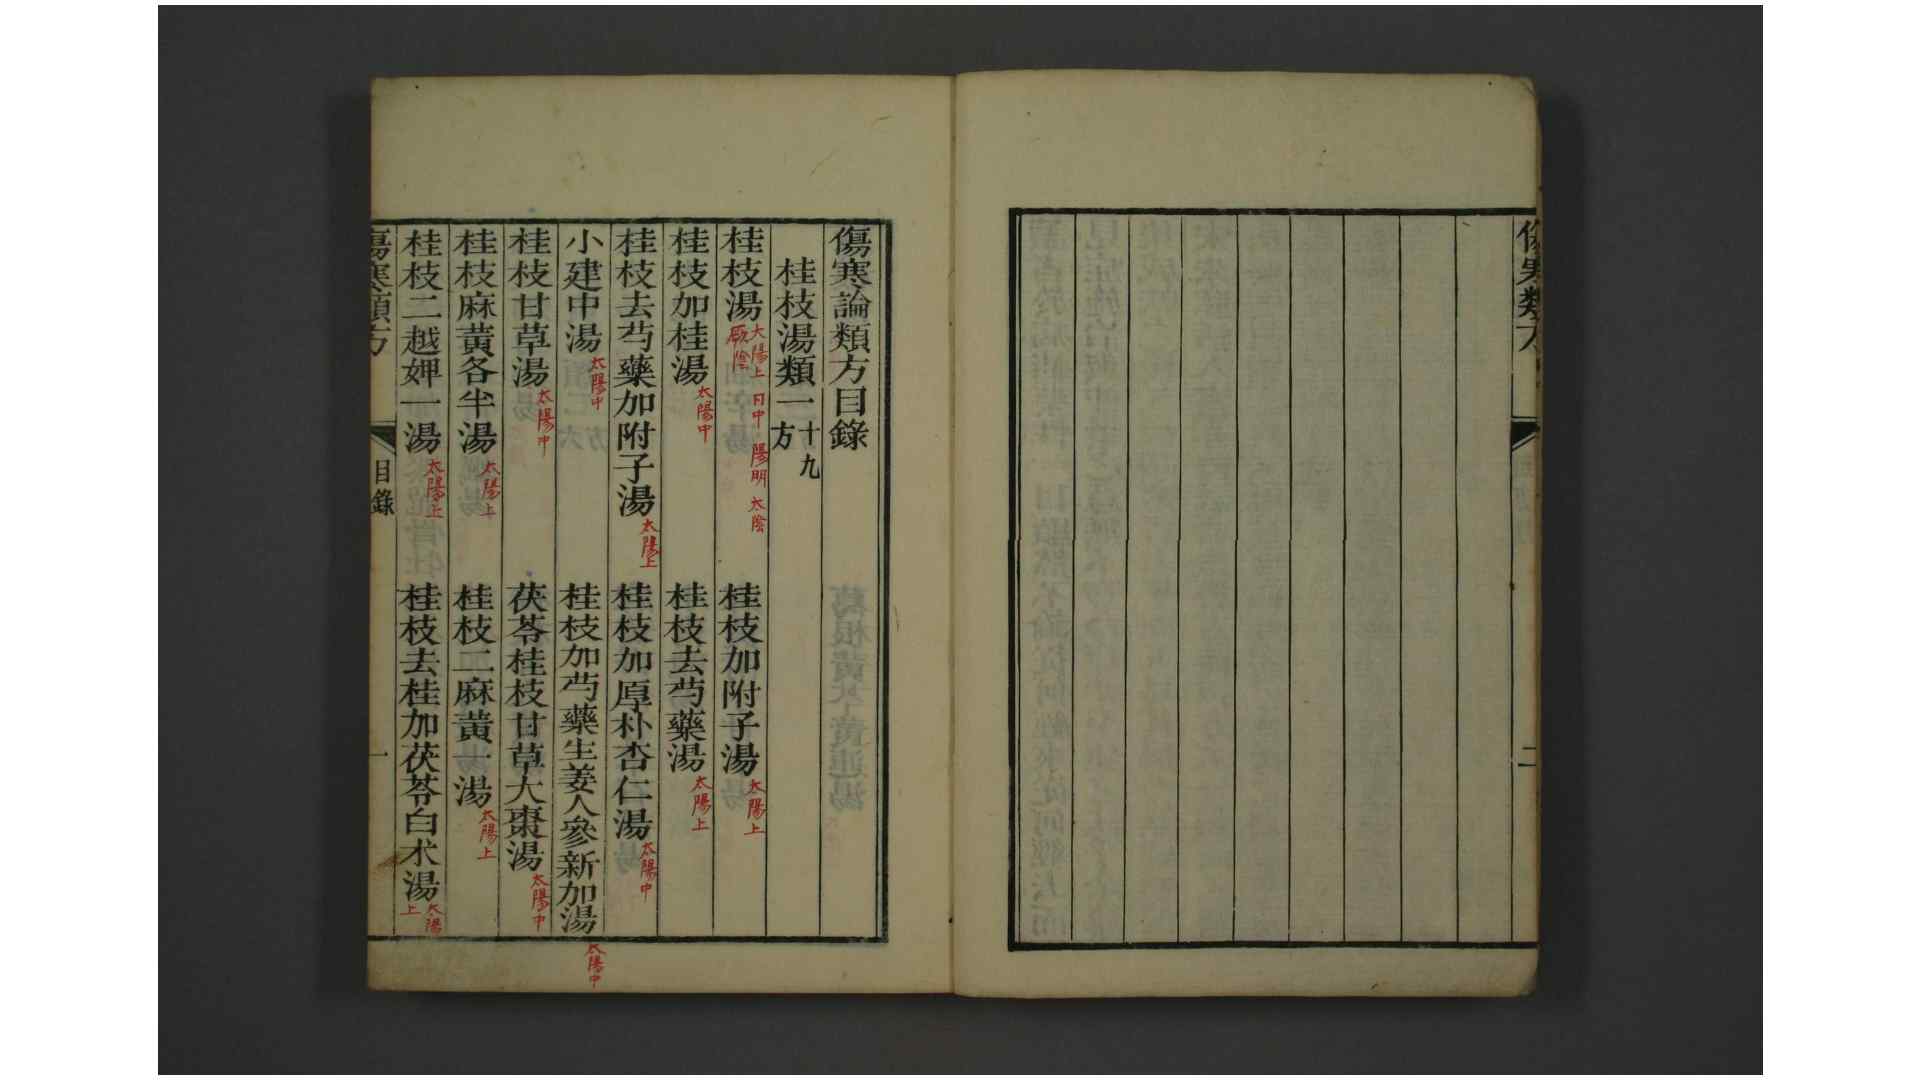 傷寒類方 二
傷寒論類方目錄
桂枝湯類一 十九方
桂枝湯 太陽上 日中 陽明 太陰 厥陰 桂枝加附子湯 太陽上
桂枝加桂湯 太陽中 桂枝去芍藥湯 太陽上
桂枝去芍藥加附子湯 太陽上 桂枝加厚朴杏仁湯 太陽中
小建中湯 太陽中 桂枝加芍藥生姜人參新加湯 太陽中
桂枝甘草湯 太陽中 茯苓桂枝甘草大棗湯 太陽中
桂枝麻黃各半湯 太陽上 桂枝二麻黃一湯 太陽上
桂枝二越婢一湯 太陽上 桂枝去桂加茯苓白朮湯 太陽上
傷寒類方 目錄 一